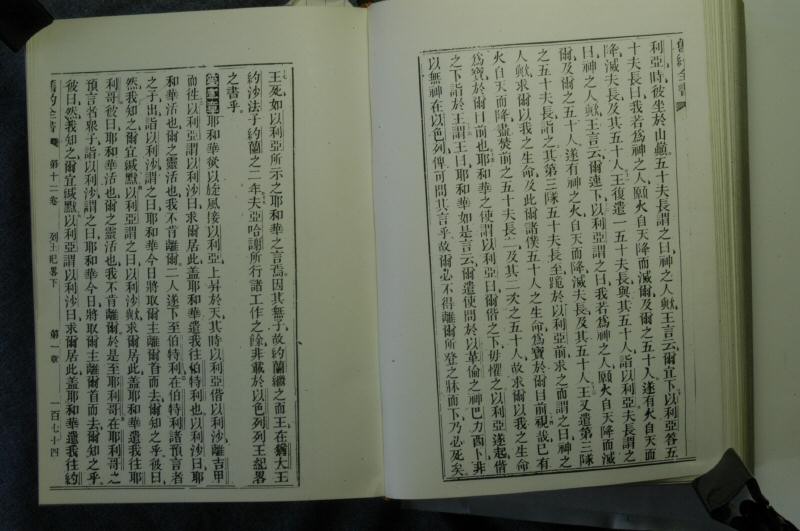 舊約全書
利亞時彼坐於山巔五十夫長謂之曰神之人歟王言云爾宜下以利亞答五
十夫長曰我若爲神之人願火自天降而滅爾及爾之五十人遂有火自天而
降滅夫長及其五十人王復遣一五十夫長與其五十人詣以利亞夫長謂之
曰神之人歟王言云爾速下以利亞謂之曰我若爲神之人願火自天降而滅
爾及爾之五十人遂有神之火自天而降滅夫長及其五十人王又遣第三隊
之五十夫長詣之其第三隊五十夫長至跪於以利亞前求之而謂之曰神之
人歟求爾以我之生命及此爾諸僕五十人之生命爲寶於爾目前視哉已有
火自天而降盡焚前之五十夫長二及其二次之五十人故求爾以我之生命
爲寶於爾目前也耶和華之使謂以利亞曰爾偕之下毋懼之以利亞遂起偕
之下詣於王謂王曰耶和華如是言云爾遣使問於以革倫之神巴力西卜非
以無神在以色列俾可問其言乎故爾必不得離爾所登之牀而下乃必死矣
王死如以利亞所示之耶和華之言焉因其無子故約蘭繼之而王在猶大王
約沙法子約蘭之二年夫亞哈謝所行諸工作之餘非載於以色列列王紀畧
之書乎
耶和華欲以旋風接以利亞上昇於天其時以利亞偕以利沙離吉甲
而往以利亞謂以利沙曰求爾居此蓋耶和華遣我往伯特利也以利沙曰耶
和華活也爾之靈活也我不肯離爾二人遂下至伯特利在伯特利諸預言者
之子出詣以利沙謂之曰耶和華今日將取爾主離爾首而去爾知之乎彼曰
然我知之爾宜緘默以利亞謂之曰以利沙歟求爾居此蓋耶和華遣我往耶
利哥彼曰耶和華活也爾之靈活也我不肯離爾於是至耶利哥在耶利哥之
預言者衆子詣以利沙謂之曰耶和華今日將取爾主離爾首而去爾知之乎
彼曰然我知之爾宜緘默以利亞謂以利沙曰求爾居此蓋耶和華遣我往約
舊約全書 第十二卷 列王紀畧下 第一章 一百七十四